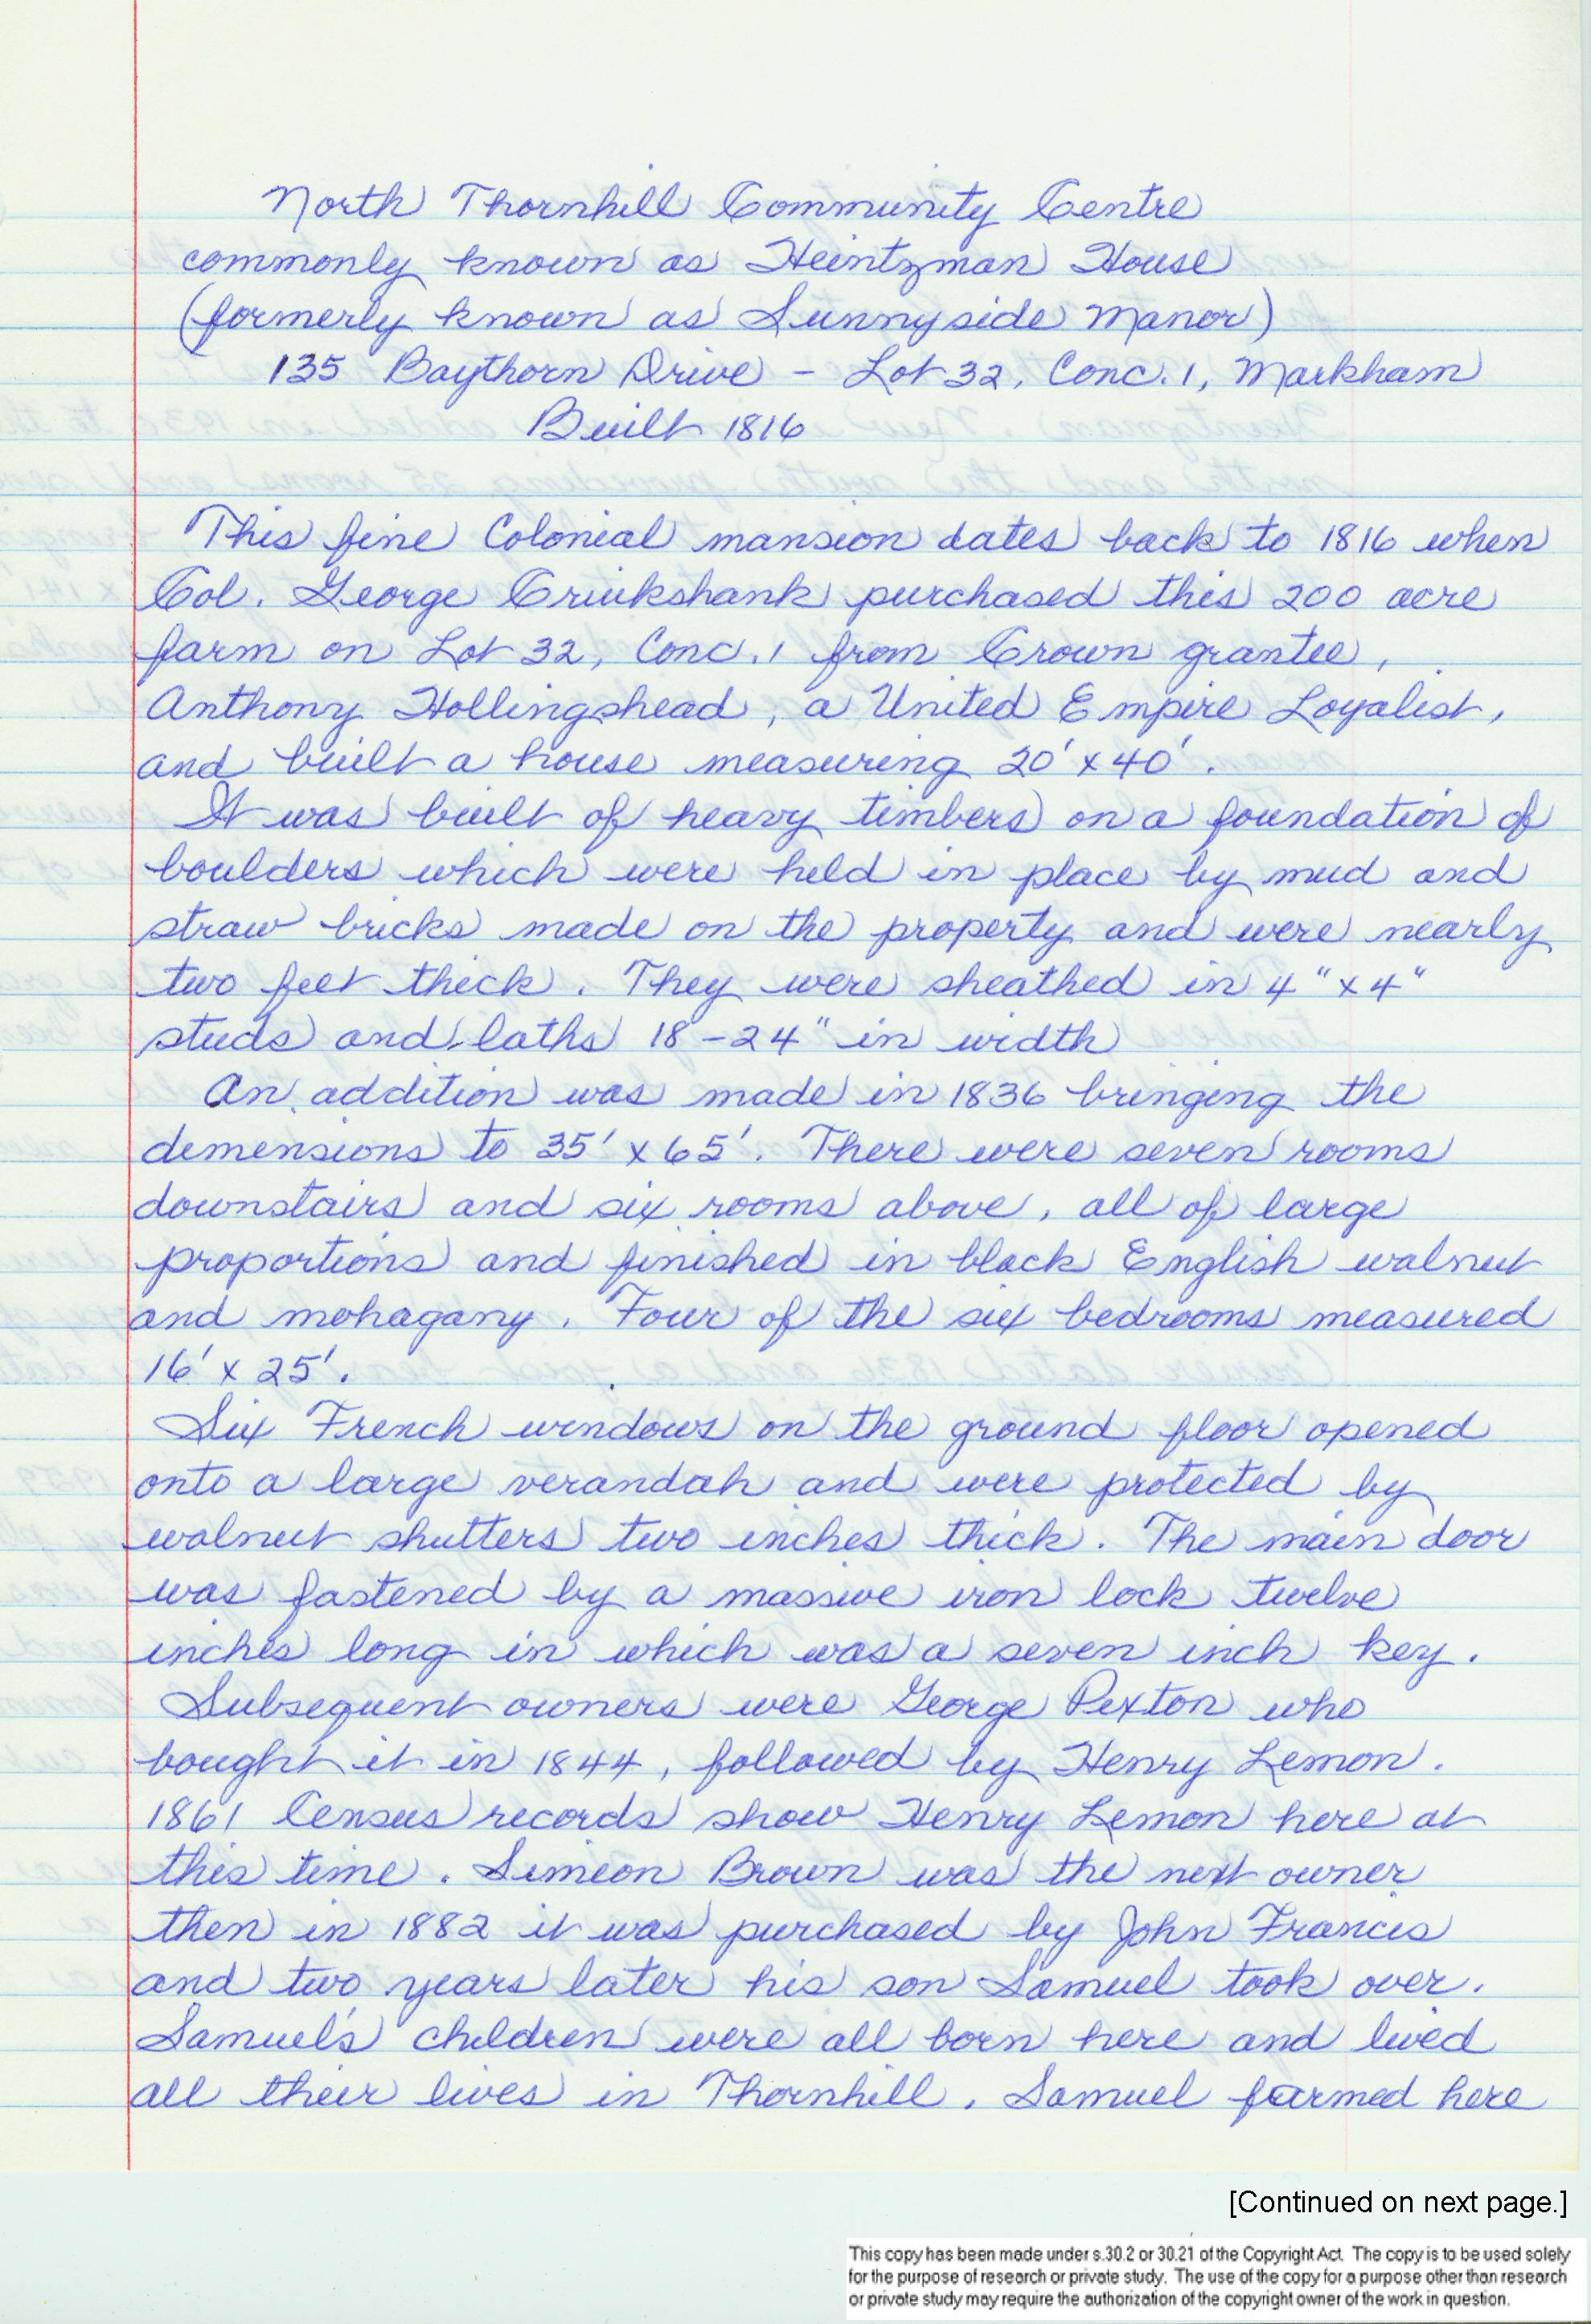 North Thornhill Community Centre
commonly known as Heintzman House
(formerly known as Sunnyside Manor)
135 Baythorn Drive - Lot 32, Conc. 1, Markham
Built 1816
This fine Colonial mansion dates back to 1816 when
Col. George Cruikshank purchased this 200 acre
farm on Lot 32, Conc. 1 from Crown grantee,
Anthony Hollingshead, a United Empire Loyalist,
and built a house measuring 20' x 40'.
It was built of heavy timbers on a foundation of
boulders which were held in place by mud and
straw bricks made on the property and were nearly
two feet thick. They were sheathed in 4" x 4"
studs and laths 18-24" in width
An addition was made in 1836 bringing the
demensions to 35' x 65'. There were seven rooms
downstairs and six rooms above, all of large
proportions and finished in black English walnut
and mohagany. Four of the six bedrooms measured
16' x 25'.
Six French windows on the ground floor opened
onto a large verandah and were protected by
walnut shutters two inches thick. The main door
was fastened by a massive iron lock twelve
inches long in which was a seven inch key.
Subsequent owners were George Pexton who
bought it in 1844, followed by Henry Lemon.
1861 Census records show Henry Lemon here at
this time. Simeon Brown was the next owner
then in 1882 it was purchased by John Francis
and two years later his son Samuel took over.
Samuel's children were all born here and lived
all their lives in Thornhill. Samuel farmed here
[Continued on next page.]
This copy has been made under s.30.2 or 30.21 of the Copyright Act. The copy is to be used solely
for the purpose of research or private study. The use of the copy for a purpose other than research
or private study may require the authorization of the copyright owner of the work in question.